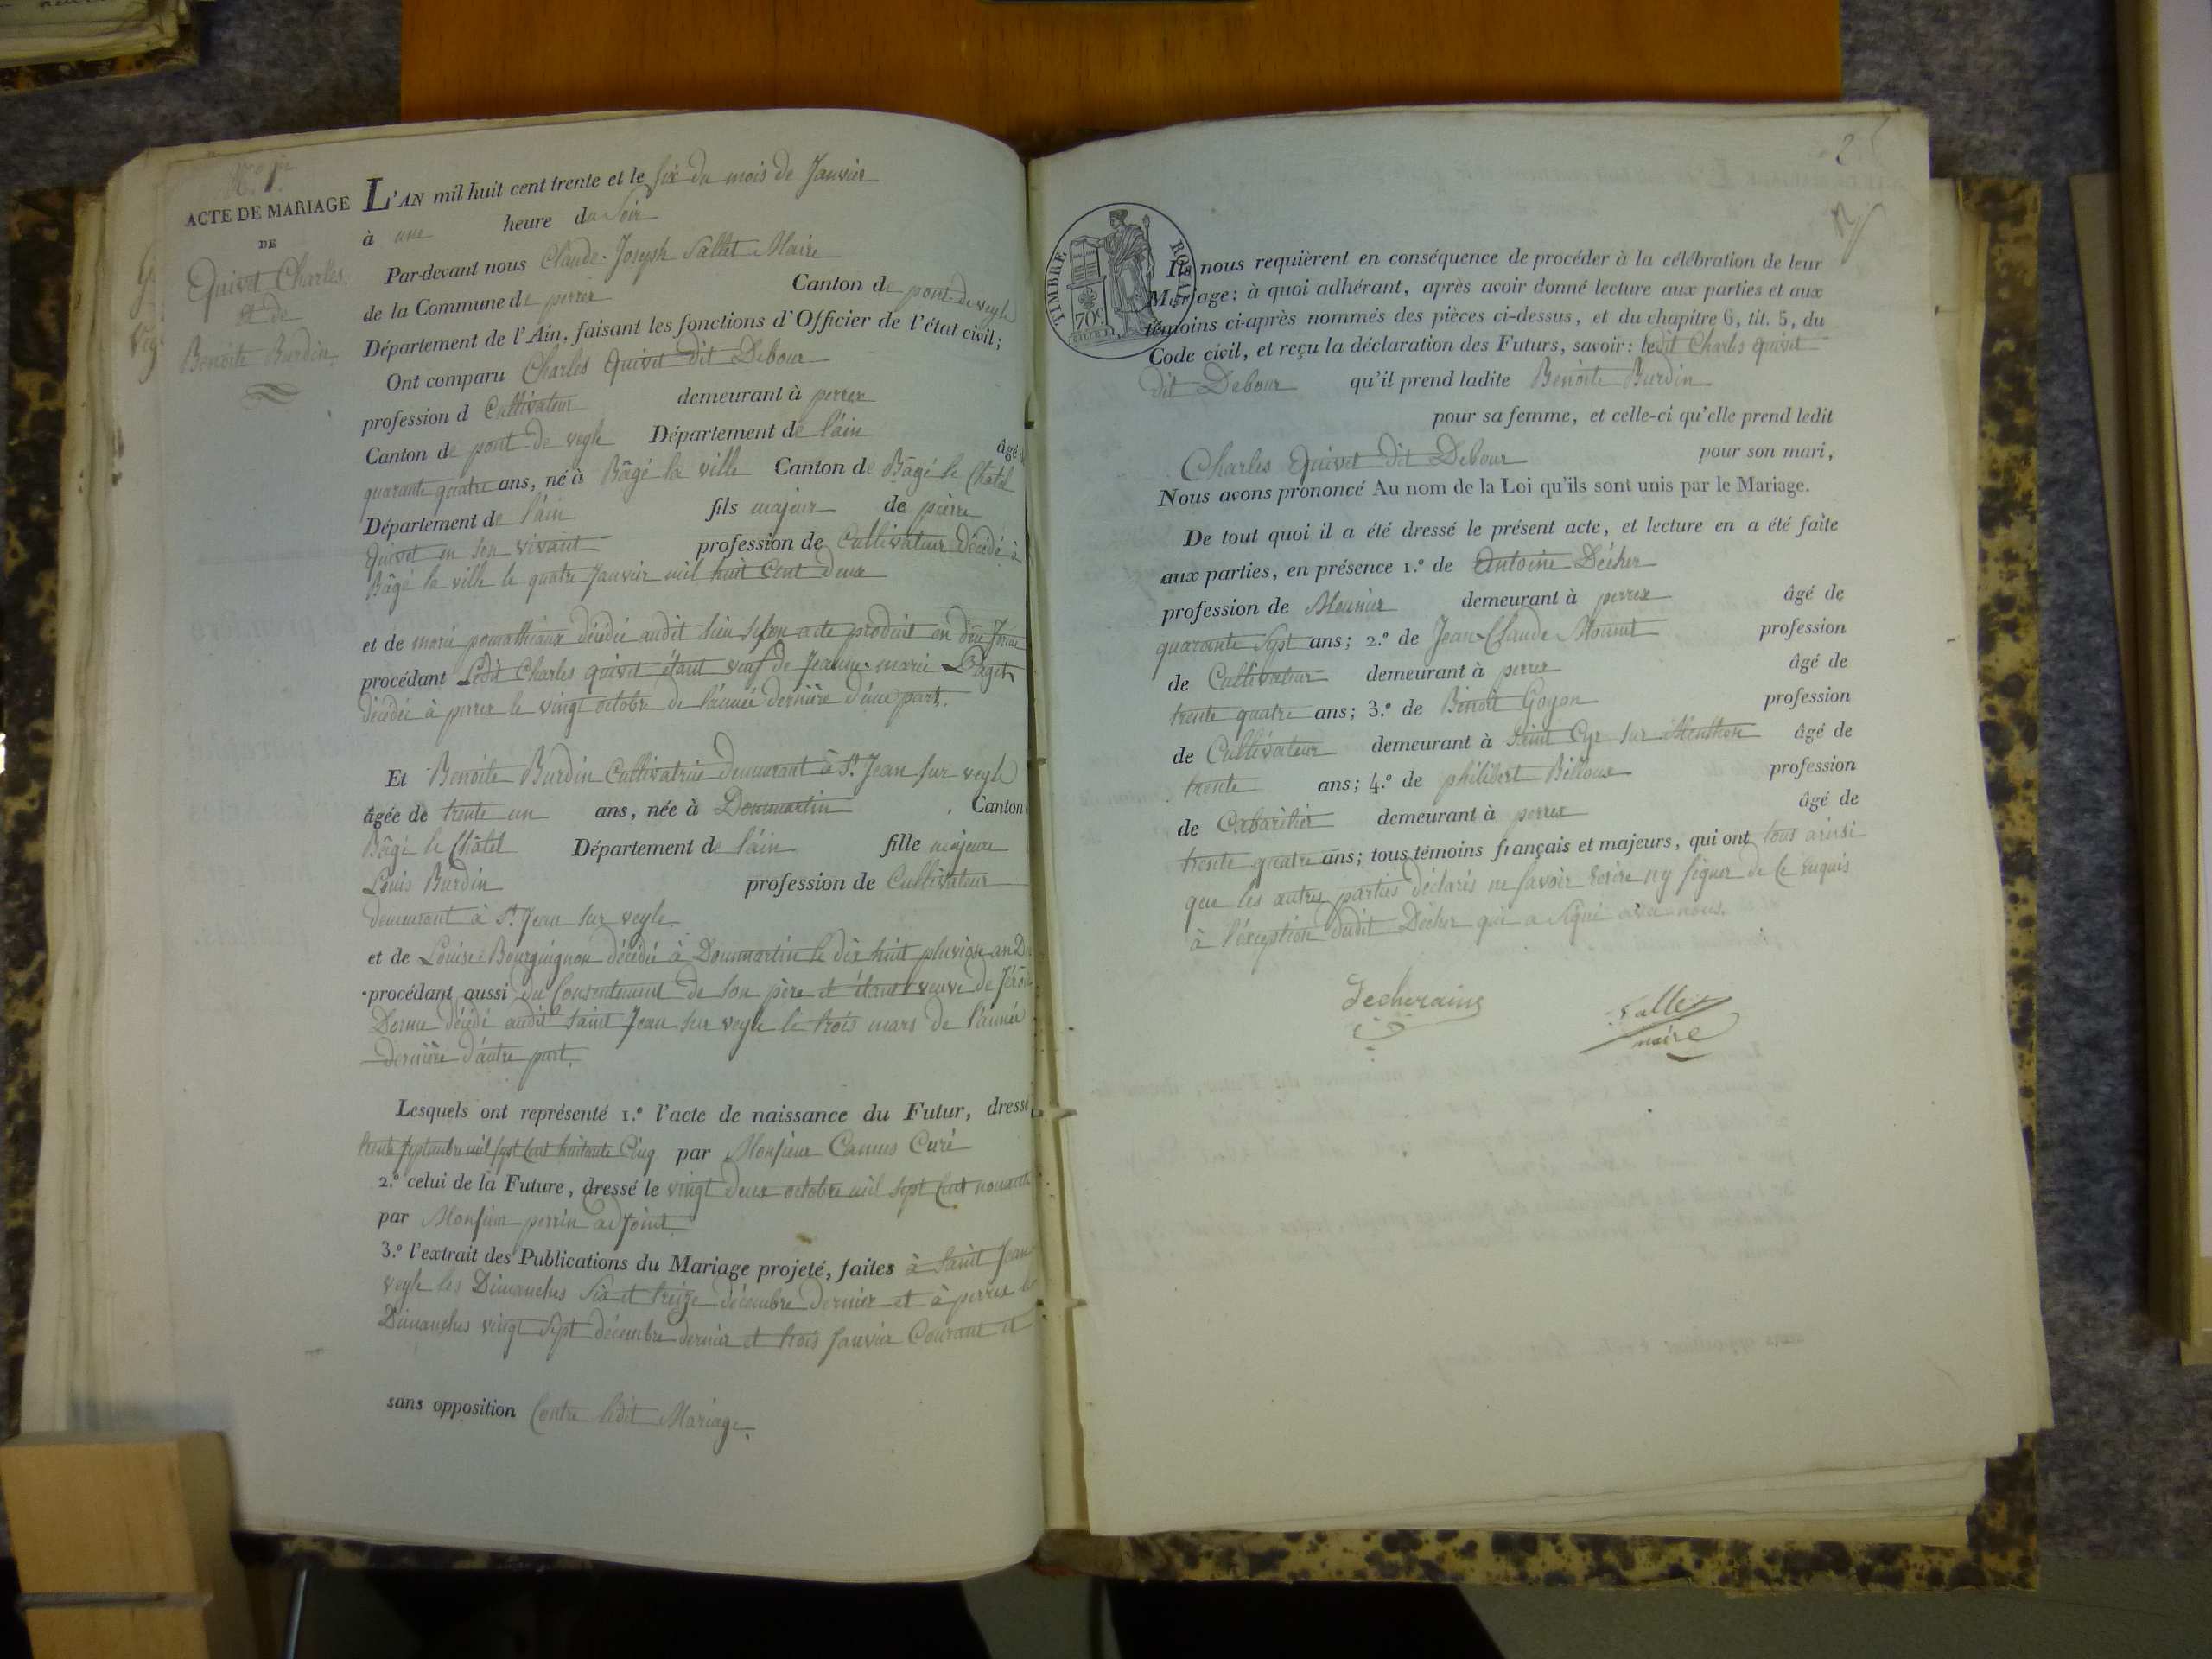 N.o 1er
ACTE DE MARIAGE
DE
Quivet Charles.
et de
Benoite Burdin.
L'AN mil huit cent trente et le six du mois de Janvier
à une heure du Soir
Par-devant nous Claude-Joseph Sallet Maire
de la Commune de perrex Canton de pont-de-veyle
Département de l'Ain, faisant les fonctions d'Officier de l'état civil;
Ont comparu Charles Quivet dit Debour
profession d Cultivateur demeurant à perrex
Canton de pont de veyle Département de l'ain âgé
quarante quatre ans, né à Bâgé la ville Canton de Bâgé le Chatel
Département de l'ain fils majeur de pierre
Quivet en son vivant profession de Cultivateur décédé à
Bâgé la ville le quatre Janvier mil huit Cent deux
et de marie pomathiaux décédée audit lieu selon acte produit en düe forme
procédant Ledit Charles quivet étant veuf de Jeanne-marie Paget
décédée à perrex le vingt octobre de l'année dernière d'une part.
Et Benoite Burdin Cultivatrice demeurant à St. Jean sur veyle
âgée de trente un ans, née à Dommartin Canton
Bâgé le Châtel Département de l'ain fille majeure
Louis Burdin profession de Cultivateur
demeurant à St. Jean sur veyle.
et de Louise Bourguignon décédée à Dommartin le dix huit pluviose an
procédant aussi du Consentement de son père et étant veuve de
Dorme décédé audit saint Jean sur veyle le trois mars de l'année
dernière d'autre part.
Lesquels ont représenté 1.o l'acte de naissance du Futur, dressé
trente septembre mil sept cent huitante Cinq par Monsieur Camus Curé
2.o celui de la Future, dressé le vingt deux octobre mil sept Cent nonante
par Monsieur perrin adjoint
3.o l'extrait des Publications du Mariage projeté, faites à Saint Jean
veyle les Dimanches six et treize décembre dernier et à perrex les
Dimanches vingt sept décembre dernier et trois Janvier Courant et
sans opposition Contre ledit Mariage.
2
TIMBRE ROYAL
70c.
Ils nous requièrent en conséquence de procéder à la célébration de leur
Mariage: à quoi adhérant, après avoir donné lecture aux parties et aux
témoins ci-après nommés des pièces ci-dessus, et du chapitre 6, tit. 5, du
Code civil, et reçu la déclaration des Futurs, savoir: ledit Charles Quivet
dit Debour qu'il prend ladite Benoite Burdin
pour sa femme, et celle-ci qu'elle prend ledit
Charles Quivet dit Debour pour son mari,
Nous avons prononcé Au nom de la Loi qu'ils sont unis par le Mariage.
De tout quoi il a été dressé le présent acte, et lecture en a été faite
aux parties, en présence 1.o de Antoine Décher
profession de Meunier demeurant à perrex âgé de
quarante sept ans; 2.o de Jean-Claude Monnet profession
de Cultivateur demeurant à perrex âgé de
trente quatre ans; 3.o de Benoit Goyon profession
de Cultivateur demeurant à Saint Cyr sur Menthon âgé de
trente ans; 4.o de philibert Billoux profession
de Cabaretier demeurant à perrex âgé de
trente quatre ans; tous témoins français et majeurs, qui ont tous ainsi
que les autres parties déclarés ne savoir écrire ny signer de ce enquis
à l'exception dudit Décher qui a signé avec nous.
Sallet
maire